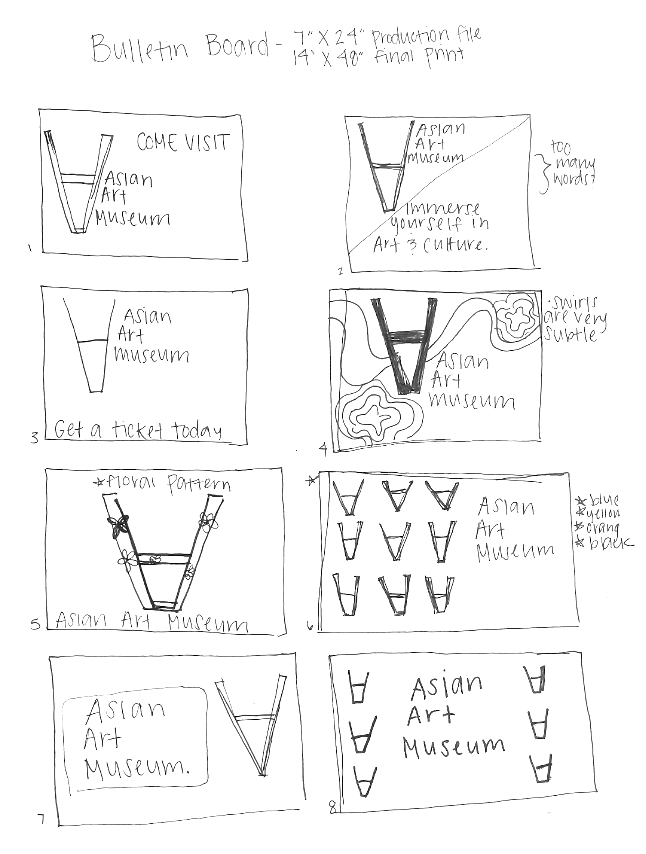 Bulletin Board - 7" X 24" Production file
14' X 48" Final Print
COME VISIT
Asian
Art
Museum
1
Asian
Art
museum
Immerse
yourself in
Art & culture.
2
too
many
words?
Asian
Art
museum
Get a ticket today
3
Asian
Art
museum
4
·swirls
are very
subtle
*floral pattern
Asian Art Museum
5
*
Asian
Art
Museum
6
*blue
*yellow
*orang
*black
Asian
Art
Museum.
7
Asian
Art
Museum
8